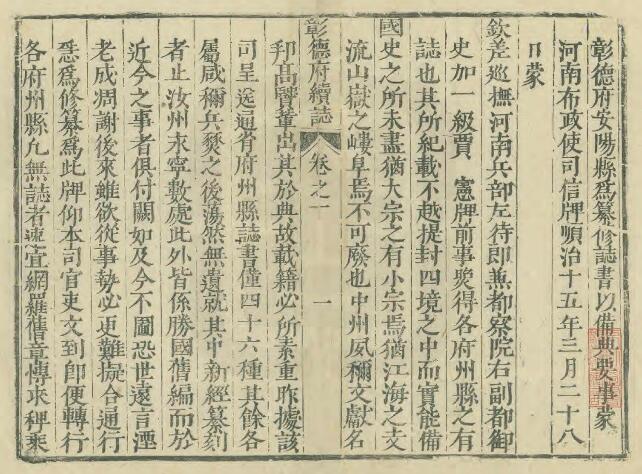 彰德府安陽縣為纂修誌書以備典要事蒙
河南布政使司信牌順治十五年三月二十八
日蒙
欽差巡撫河南兵部左侍郎兼都察院右副都御
史加一級賈　憲牌前事得各府州縣之有
誌也其所紀載不越提封四境之中而實能備
國史之所未盡猶大宗之有小宗焉猶江海之支
流山嶽之嶁阜焉不可廢也中州夙稱文獻名
彰德府續誌　卷之一　一
邦高賢輩出其於典故載籍必所素重昨據該
司呈送通省府州縣誌書僅四十六種其餘各
屬咸稱兵燹之後蕩然無遺就其中新經纂刻
者止汝州永寧數處此外皆係勝國舊編而於
近今之事者俱付闕如及今不圖恐世遠言湮
老成凋謝後來雖欲從事勢必更難擬合通行
悉為修纂為此牌仰本司官吏文到即便轉行
各府州縣凡無誌者速宜網羅舊章博求稗乘